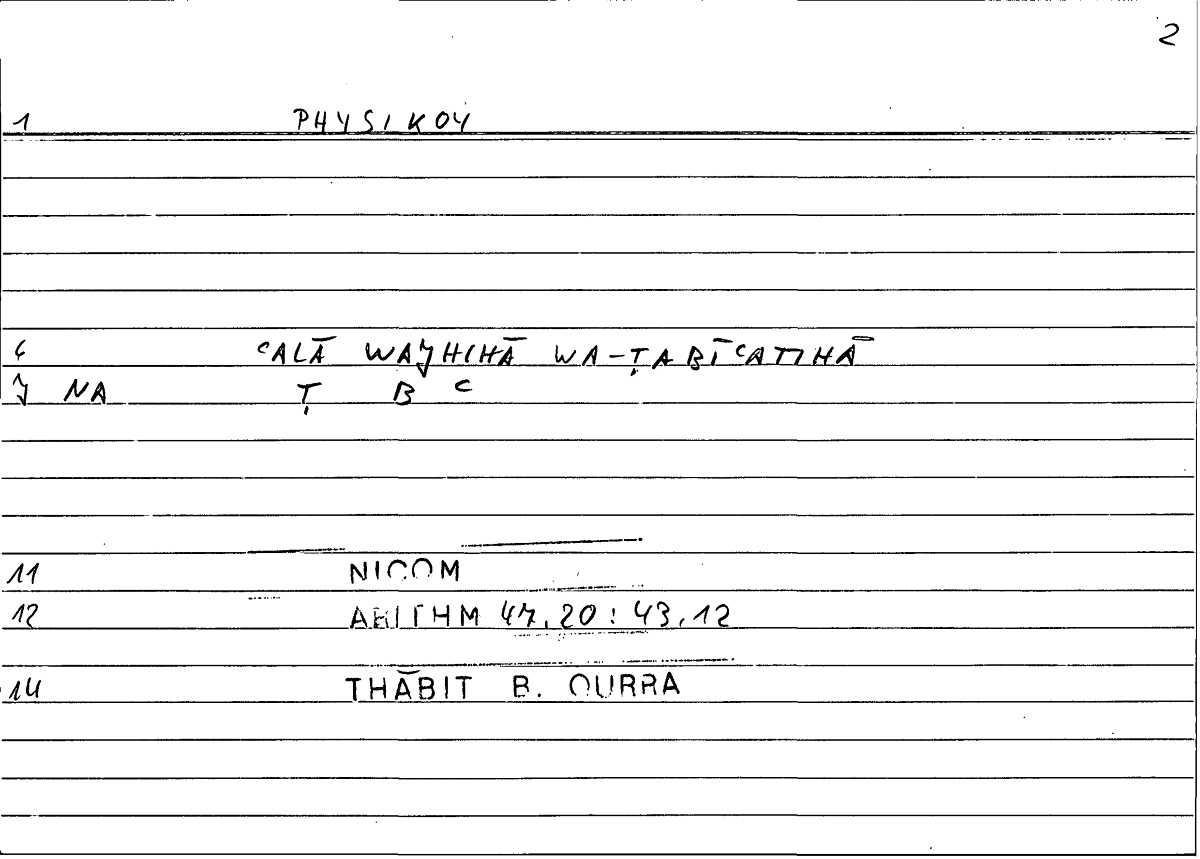 2
1 PHYSIKOY
6 ʿALĀ WAJHIHĀ WA-ṬABĪʿATIHĀ
J NA Ṭ B ʿ
11 NICOM
12 ARITHM 47,20 : 43,12
14 THĀBIT B. QURRA